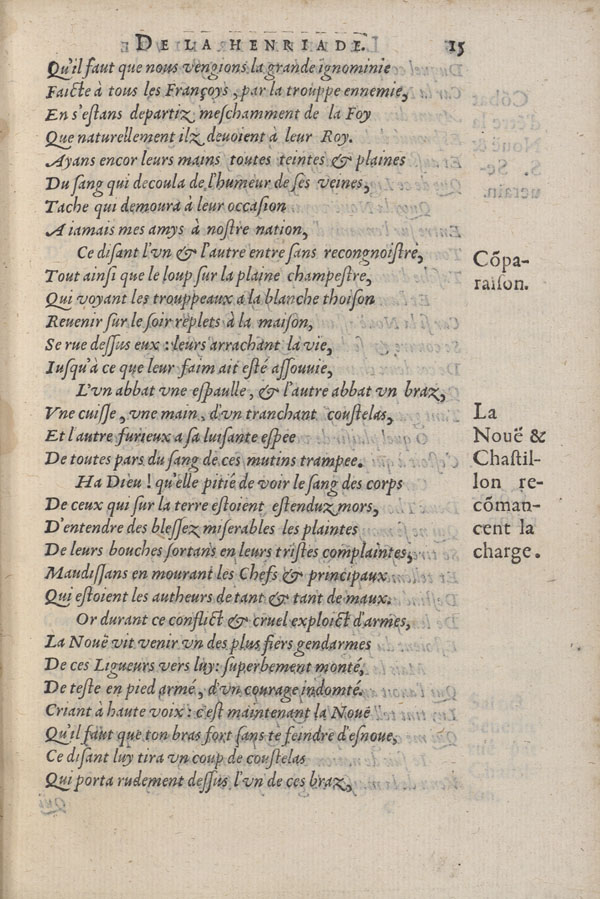 DE LA HENRIADE. 15
Qu'il faut que nous vengions la grande ignominie
Faicte à tous les Françoys, par la trouppe ennemie,
En s'estans departiz meschamment de la Foy
Que naturellement ilz deuoient à leur Roy.
Ayans encor leurs mains toutes teintes & plaines
Du sang qui decoula de l'humeur de ses veines,
Tache qui demoura à leur occasion
A iamais mes amys à nostre nation,
Ce disant l'vn & l'autre entre sans recongnoistre,
Cõpa-
Tout ainsi que le loup sur la plaine champestre,
raison.
Qui voyant les trouppeaux a la blanche thoison
Reuenir sur le soir replets à la maison,
Se rue dessus eux : leurs arrachant la vie,
Iusqu'à ce que leur faim ait esté assouuie,
L'vn abbat vne espaulle, & l'autre abbat vn braz,
Vne cuisse, vne main, d'vn tranchant coustelas,
La
Et l'autre furieux a sa luisante espee
Nouë &
De toutes pars du sang de ces mutins trampee.
Chastil-
Ha Dieu ! qu'elle pitié de voir le sang des corps
lon re-
De ceux qui sur la terre estoient estenduz mors,
cõman-
D'entendre des blessez miserables les plaintes
cent la
De leurs bouches sortans en leurs tristes complaintes,
charge.
Maudissans en mourant les Chefs & principaux
Qui estoient les autheurs de tant & tant de maux.
Or durant ce conflict & cruel exploict d'armes,
La Nouë vit venir vn des plus fiers gendarmes
De ces Ligueurs vers luy: superbement monté,
De teste en pied armé, d'vn courage indomté.
Criant à haute voix : c'est maintenant la Nouë
Qu'il faut que ton bras fort sans te feindre d'esnoue,
Ce disant luy tira vn coup de coustelas
Qui porta rudement dessus l'vn de ces braz,